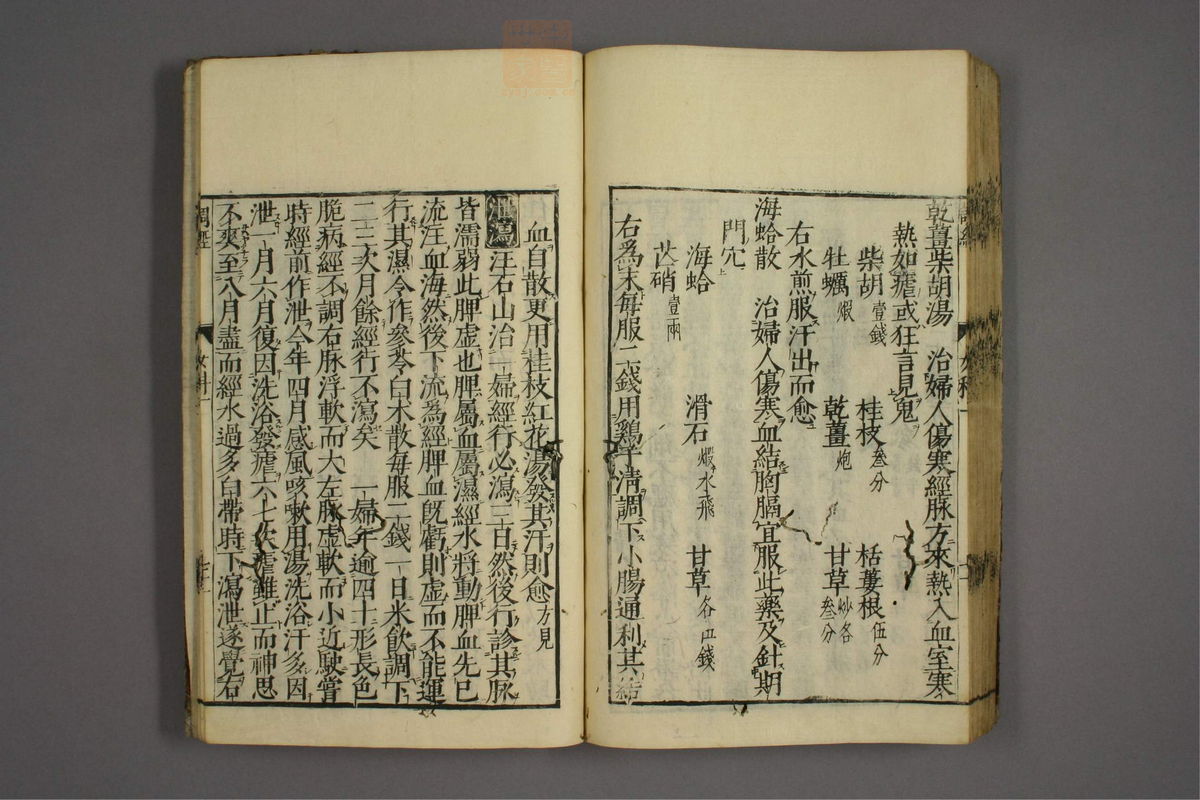 乾薑柴胡湯　治婦人傷寒經脉方來熱入血室寒
熱如瘧或狂言見鬼
柴胡壹錢　桂枝叁分　栝蔞根伍分
牡蠣煆　乾薑炮　甘草炒各叁分
右水煎服汗出而愈
海蛤散　治婦人傷寒血結胸膈宜服此藥及針期
門穴
海蛤　滑石煆水飛　甘草各四錢
芒硝壹兩
右爲末毎服二錢用鷄子淸調下小腸通利其結
血自散更用桂枝紅花湯發其汗則愈方見
泄瀉　汪石山治一婦經行必瀉三日然後行診其脉
皆濡弱此脾虛也脾屬血屬濕經水將動脾血先已
流注血海然後下流爲經脾血旣虧則虛而不能運
行其濕令作參苓白术散毎服二錢一日米飮調下
二三次月餘經行不瀉矣　一婦年逾四十形長色
脆病經不調右脉浮軟而大左脉虛軟而小近駛嘗
時經前作泄今年四月感風咳嗽用湯洗浴汗多因
泄一月六月復因洗浴發瘧六七次瘧雖止而神思
不爽至八月盡而經水過多白帶時下瀉泄遂覺右
調經
女科一